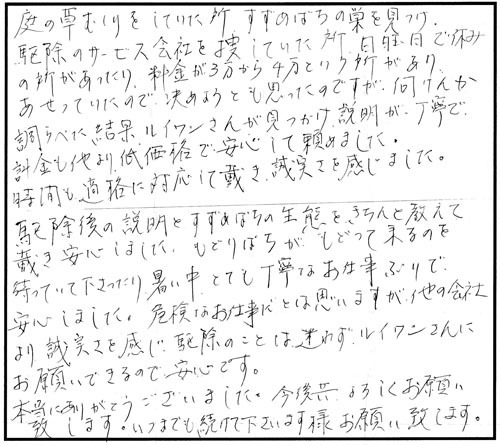 庭の草むしりをしていた所 すずめばちの巣を見つけ、
駆除のサービス会社を捜していた所、日曜日で休み
の所があったり、料金が3万から4万という所があり、
あせっていたので、決めようとも思ったのですが、何けんか
調らべた結果 ルイワンさんが見つかり、説明が、丁寧で、
料金も他より低価格で安心して頼めました。
時間も適格に対応して戴き、誠実さを感じました。
駆除後の説明とすずめばちの生態をきちんと教えて
戴き安心しました。もどりばちが、もどって来るのを
待っていて下さったり 暑い中、とても丁寧なお仕事ぶりで
安心しました。危険なお仕事だとは思いますが、他の会社
より誠実さを感じ、駆除のことは迷わず、ルイワンさんに
お願いできるので安心です。
本当にありがとうございました。今後共 よろしくお願い
致します。いつまでも続けて下さいます様お願い致します。